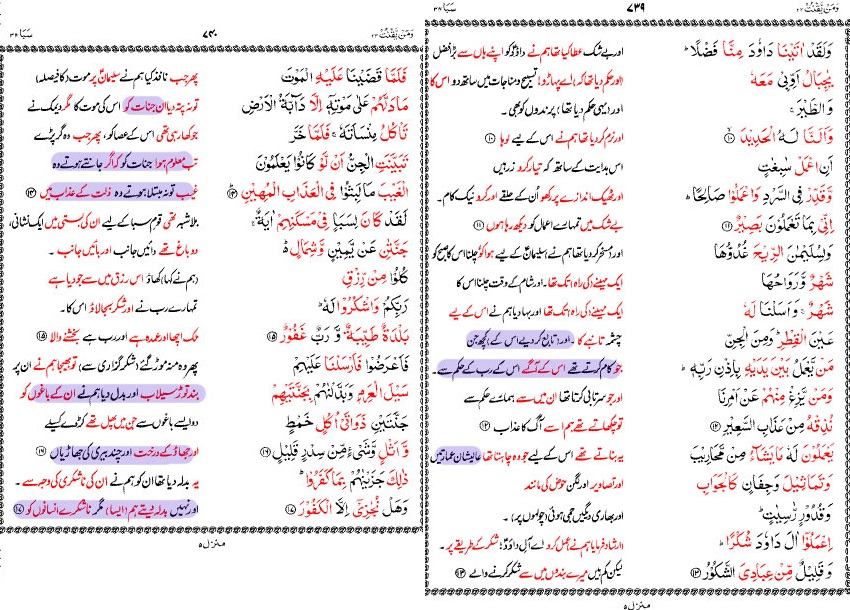 وَمَنْ يَّقْنُتْ ٢٢
٧٣٩
سَبَا ٣٤
وَلَقَدْ اٰتَيْنَا دَاوٗدَ مِنَّا فَضْلًا ؕ
اور بے شک عطا کیا تھا ہم نے داؤد کو اپنے ہاں سے بڑا فضل
يٰجِبَالُ اَوِّبِىْ مَعَهٗ
(اور حکم دیا تھا کہ) اے پہاڑو! تسبیح و مناجات میں ساتھ دو اس کا
وَالطَّيْرَ ۚ
اور (یہی حکم دیا تھا) پرندوں کو بھی۔
وَاَلَنَّا لَهُ الْحَدِيْدَ ۙ‏ ⑩
اور نرم کر دیا تھا ہم نے اس کے لیے لوہا ⑩
اَنِ اعْمَلْ سٰبِغٰتٍ
اس ہدایت کے ساتھ کہ تیار کرو زرہیں
وَّقَدِّرْ فِى السَّرْدِ وَاعْمَلُوْا صَالِحًا ؕ
اور ٹھیک اندازے پر رکھو اُن کے حلقے اور کرو نیک کام۔
اِنِّىْ بِمَا تَعْمَلُوْنَ بَصِيْرٌ ⑪
بے شک میں تمہارے اعمال کو دیکھ رہا ہوں ⑪
وَلِسُلَيْمٰنَ الرِّيْحَ غُدُوُّهَا
اور (مسخر کر دیا تھا ہم نے) سلیمانؑ کے لیے ہوا کو چلنا اس کا صبح کو
شَهْرٌ وَّرَوَاحُهَا
ایک مہینے (کی راہ) تک تھا۔ اور شام کے وقت چلنا اس کا
شَهْرٌ ۚ وَاَسَلْنَا لَهٗ
ایک مہینے (کی راہ) تک تھا اور بہا دیا ہم نے اس کے لیے
عَيْنَ الْقِطْرِ ؕ وَمِنَ الْجِنِّ
چشمہ تانبے کا۔ اور (تابع کر دیے اس کے) کچھ جن
مَنْ يَّعْمَلُ بَيْنَ يَدَيْهِ بِاِذْنِ رَبِّهٖ ؕ
جو کام کرتے تھے اس کے آگے اس کے رب کے حکم سے۔
وَمَنْ يَّزِغْ مِنْهُمْ عَنْ اَمْرِنَا
اور جو سرتابی کرتا تھا ان میں سے ہمارے حکم سے
نُذِقْهُ مِنْ عَذَابِ السَّعِيْرِ ⑫
تو چکھاتے تھے ہم اسے آگ کا عذاب ⑫
يَعْمَلُوْنَ لَهٗ مَا يَشَآءُ مِنْ مَّحَارِيْبَ
یہ بناتے تھے اس کے لیے جو وہ چاہتا تھا عالیشان عمارتیں
وَتَمَاثِيْلَ وَجِفَانٍ كَالْجَوَابِ
اور تصاویر اور لگن حوض کی مانند
وَقُدُوْرٍ رّٰسِيٰتٍ ؕ
اور بھاری دیگیں جمی ہوئی (چولہوں پر)۔
اِعْمَلُوْۤا اٰلَ دَاوٗدَ شُكْرًا ؕ
(ارشاد فرمایا ہم نے) عمل کرو اے آلِ داؤد! شکر کے طریقے پر۔
وَقَلِيْلٌ مِّنْ عِبَادِىَ الشَّكُوْرُ ⑬
لیکن کم ہیں میرے بندوں میں سے شکر کرنے والے ⑬
منزل ٥
وَمَنْ يَّقْنُتْ ٢٢
٧٤٠
سَبَا ٣٤
فَلَمَّا قَضَيْنَا عَلَيْهِ الْمَوْتَ
پھر جب نافذ کیا ہم نے سلیمانؑ پر موت (کا فیصلہ)
مَا دَلَّهُمْ عَلٰى مَوْتِهٖۤ اِلَّا دَآبَّةُ الْاَرْضِ
تو نہ پتہ دیا ان جنات کو اس کی موت کا مگر دیمک نے
تَاْكُلُ مِنْسَاَتَهٗ ۚ فَلَمَّا خَرَّ
جو کھا رہی تھی اس کے عصا کو، پھر جب وہ گر پڑے
تَبَيَّنَتِ الْجِنُّ اَنْ لَّوْ كَانُوْا يَعْلَمُوْنَ
تب معلوم ہوا جنات کو کہ اگر جانتے ہوتے وہ
الْغَيْبَ مَا لَبِثُوْا فِى الْعَذَابِ الْمُهِيْنِ ؕ ⑭
غیب تو نہ مبتلا ہوتے وہ ذلت کے عذاب میں ⑭
لَقَدْ كَانَ لِسَبَاٍ فِىْ مَسْكَنِهِمْ اٰيَةٌ ۚ
بلاشبہ تھی قومِ سبا کے لیے ان کی بستی میں ایک نشانی،
جَنَّتٰنِ عَنْ يَّمِيْنٍ وَّشِمَالٍ ؕ
دو باغ تھے دائیں جانب اور بائیں جانب۔
كُلُوْا مِنْ رِّزْقِ
(ہم نے کہا) کھاؤ اس رزق میں سے جو دیا ہے
رَبِّكُمْ وَاشْكُرُوْا لَهٗ ؕ
تمہارے رب نے اور شکر بجا لاؤ اس کا۔
بَلْدَةٌ طَيِّبَةٌ وَّرَبٌّ غَفُوْرٌ ⑮
ملک اچھا اور عمدہ ہے اور رب ہے بخشنے والا ⑮
فَاَعْرَضُوْا فَاَرْسَلْنَا عَلَيْهِمْ
پھر وہ منہ موڑ گئے (شکر گزاری سے) تو بھیجا ہم نے ان پر
سَيْلَ الْعَرِمِ وَبَدَّلْنٰهُمْ بِجَنَّتَيْهِمْ
بند توڑ سیلاب اور بدل دیا ہم نے ان کے باغوں کو
جَنَّتَيْنِ ذَوَاتَىْ اُكُلٍ خَمْطٍ
دو ایسے باغوں سے جن میں پھل تھے کڑوے کسیلے
وَّاَثْلٍ وَّشَىْءٍ مِّنْ سِدْرٍ قَلِيْلٍ ⑯
اور جھاؤ کے درخت اور چند بیری کی جھاڑیاں ⑯
ذٰلِكَ جَزَيْنٰهُمْ بِمَا كَفَرُوْا ؕ
یہ بدلہ دیا تھا ان کو ہم نے ان کی ناشکری کی وجہ سے۔
وَهَلْ نُجٰزِىْۤ اِلَّا الْكَفُوْرَ ⑰
اور نہیں بدلہ دیتے ہم (ایسا) مگر ناشکرے انسانوں کو ⑰
منزل ٥